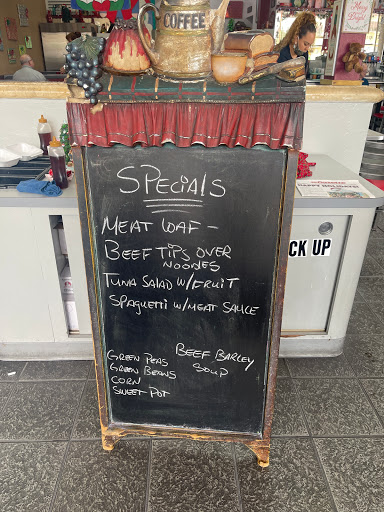 COFFEE
SPECIALS
MEAT LOAF -
BEEF TIPS OVER
NOODES
TUNA SALAD W/FRUIT
SPAGHETTI W/MEAT SAUCE
GREEN PEAS
GREEN BEANS
CORN
SWEET POT
BEEF BARLEY
SOUP
CK UP